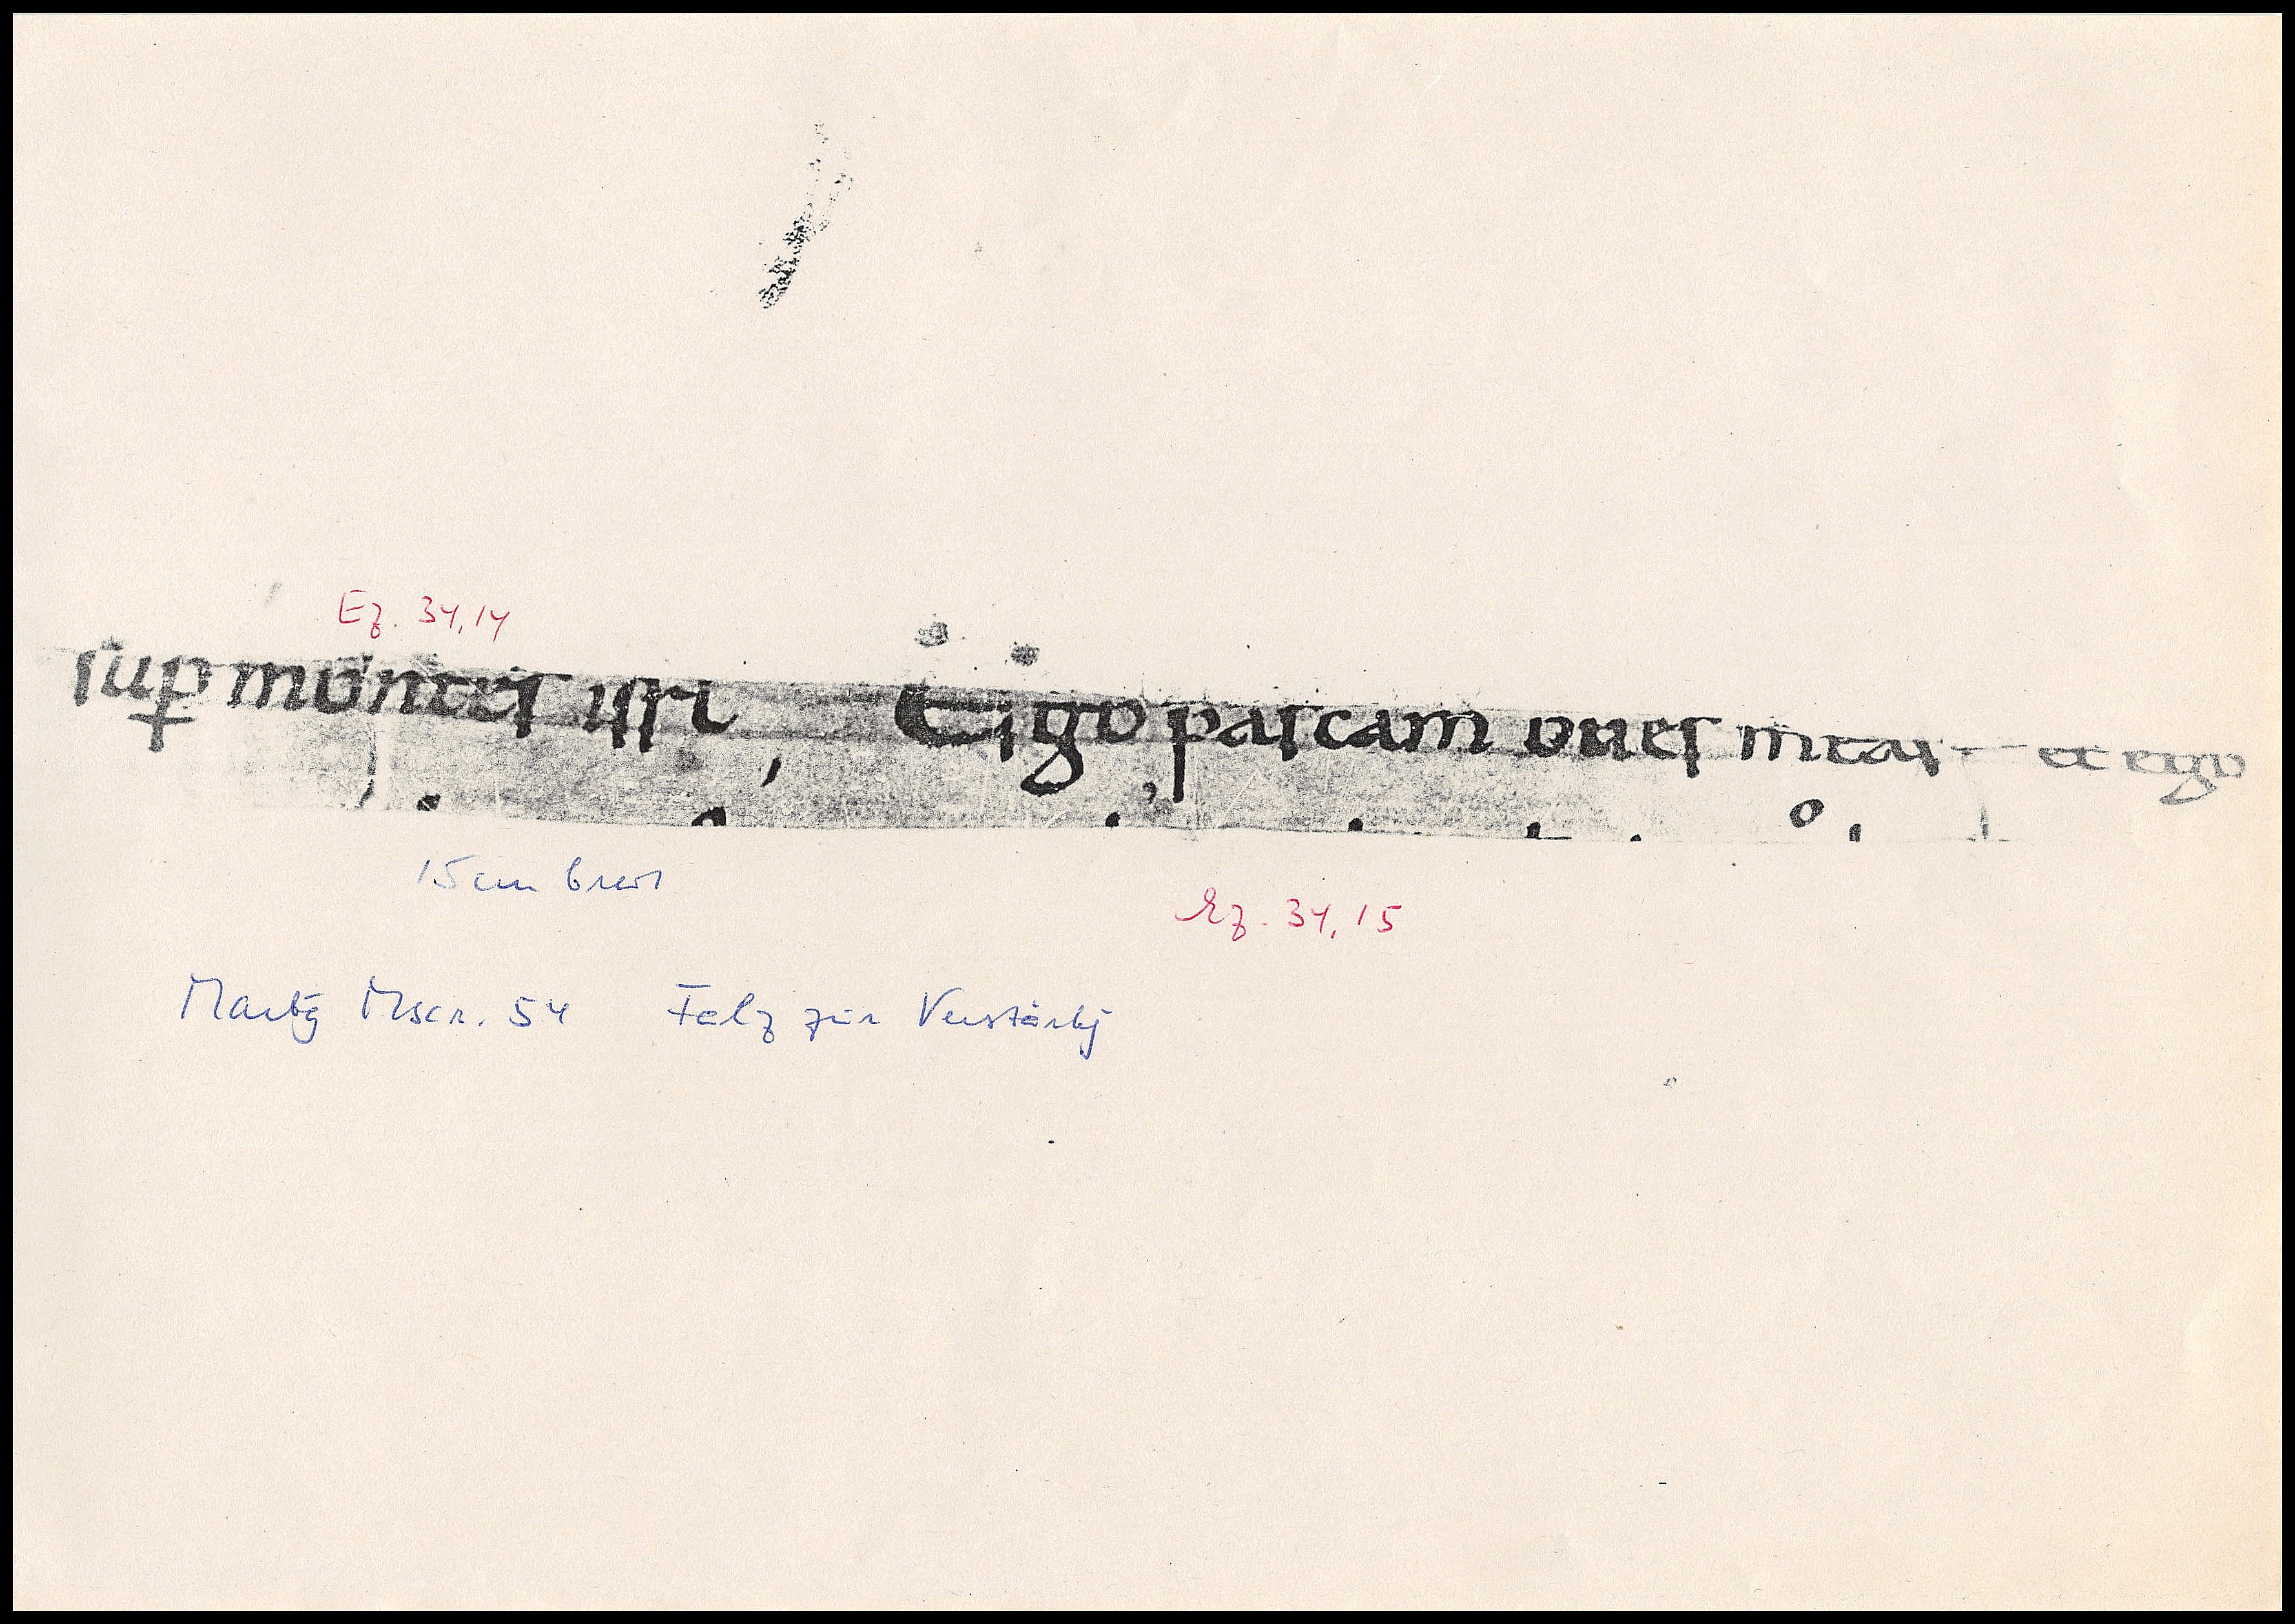 Ez. 34,14
sup montes isrl , Ego pascam oues meas et ego
15 cm breit
Ez. 34,15
Marbg Mscr. 54 Falz zur Verstärkg